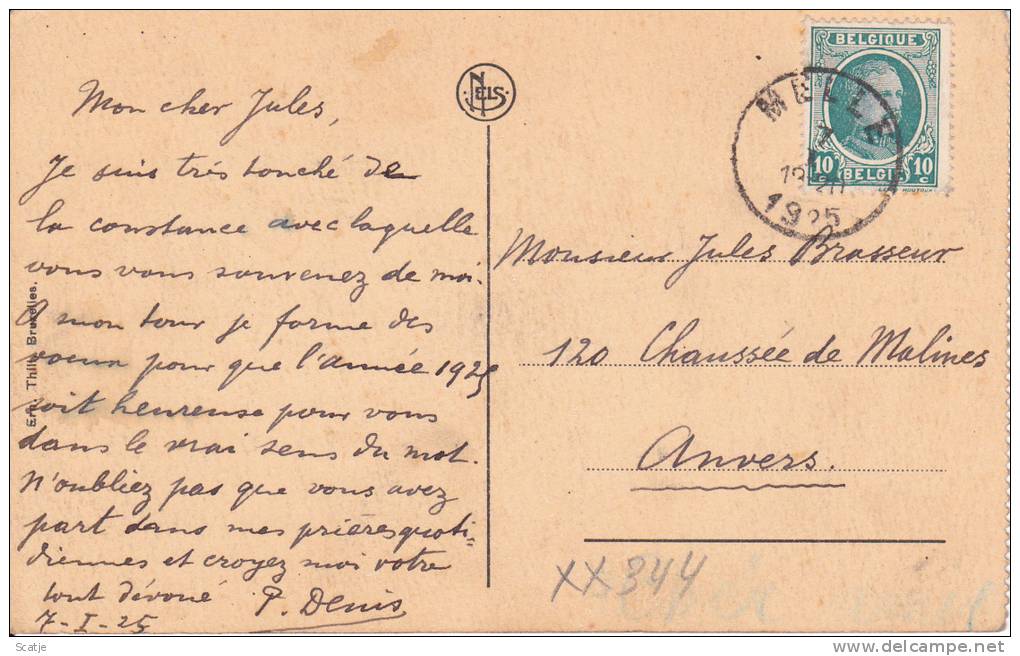 Mon cher Jules,
Je suis très touché de
la constance avec laquelle
vous vous souvenez de moi.
A mon tour je forme des
voeux pour que l'année 1925
soit heureuse pour vous
dans le vrai sens du mot.
N'oubliez pas que vous avez
part dans mes prières quoti=
diennes et croyez moi votre
tout dévoué P. Denis
7-I-25
Ern. Thill, Bruxelles.
NELS
BELGIQUE
10 c 10 c
BELGIE
HOUYOUX
MELLE
7
1925
Monsieur Jules Brasseur
120 Chaussée de Malines
Anvers.
XX344
Scatje
delcampe.net